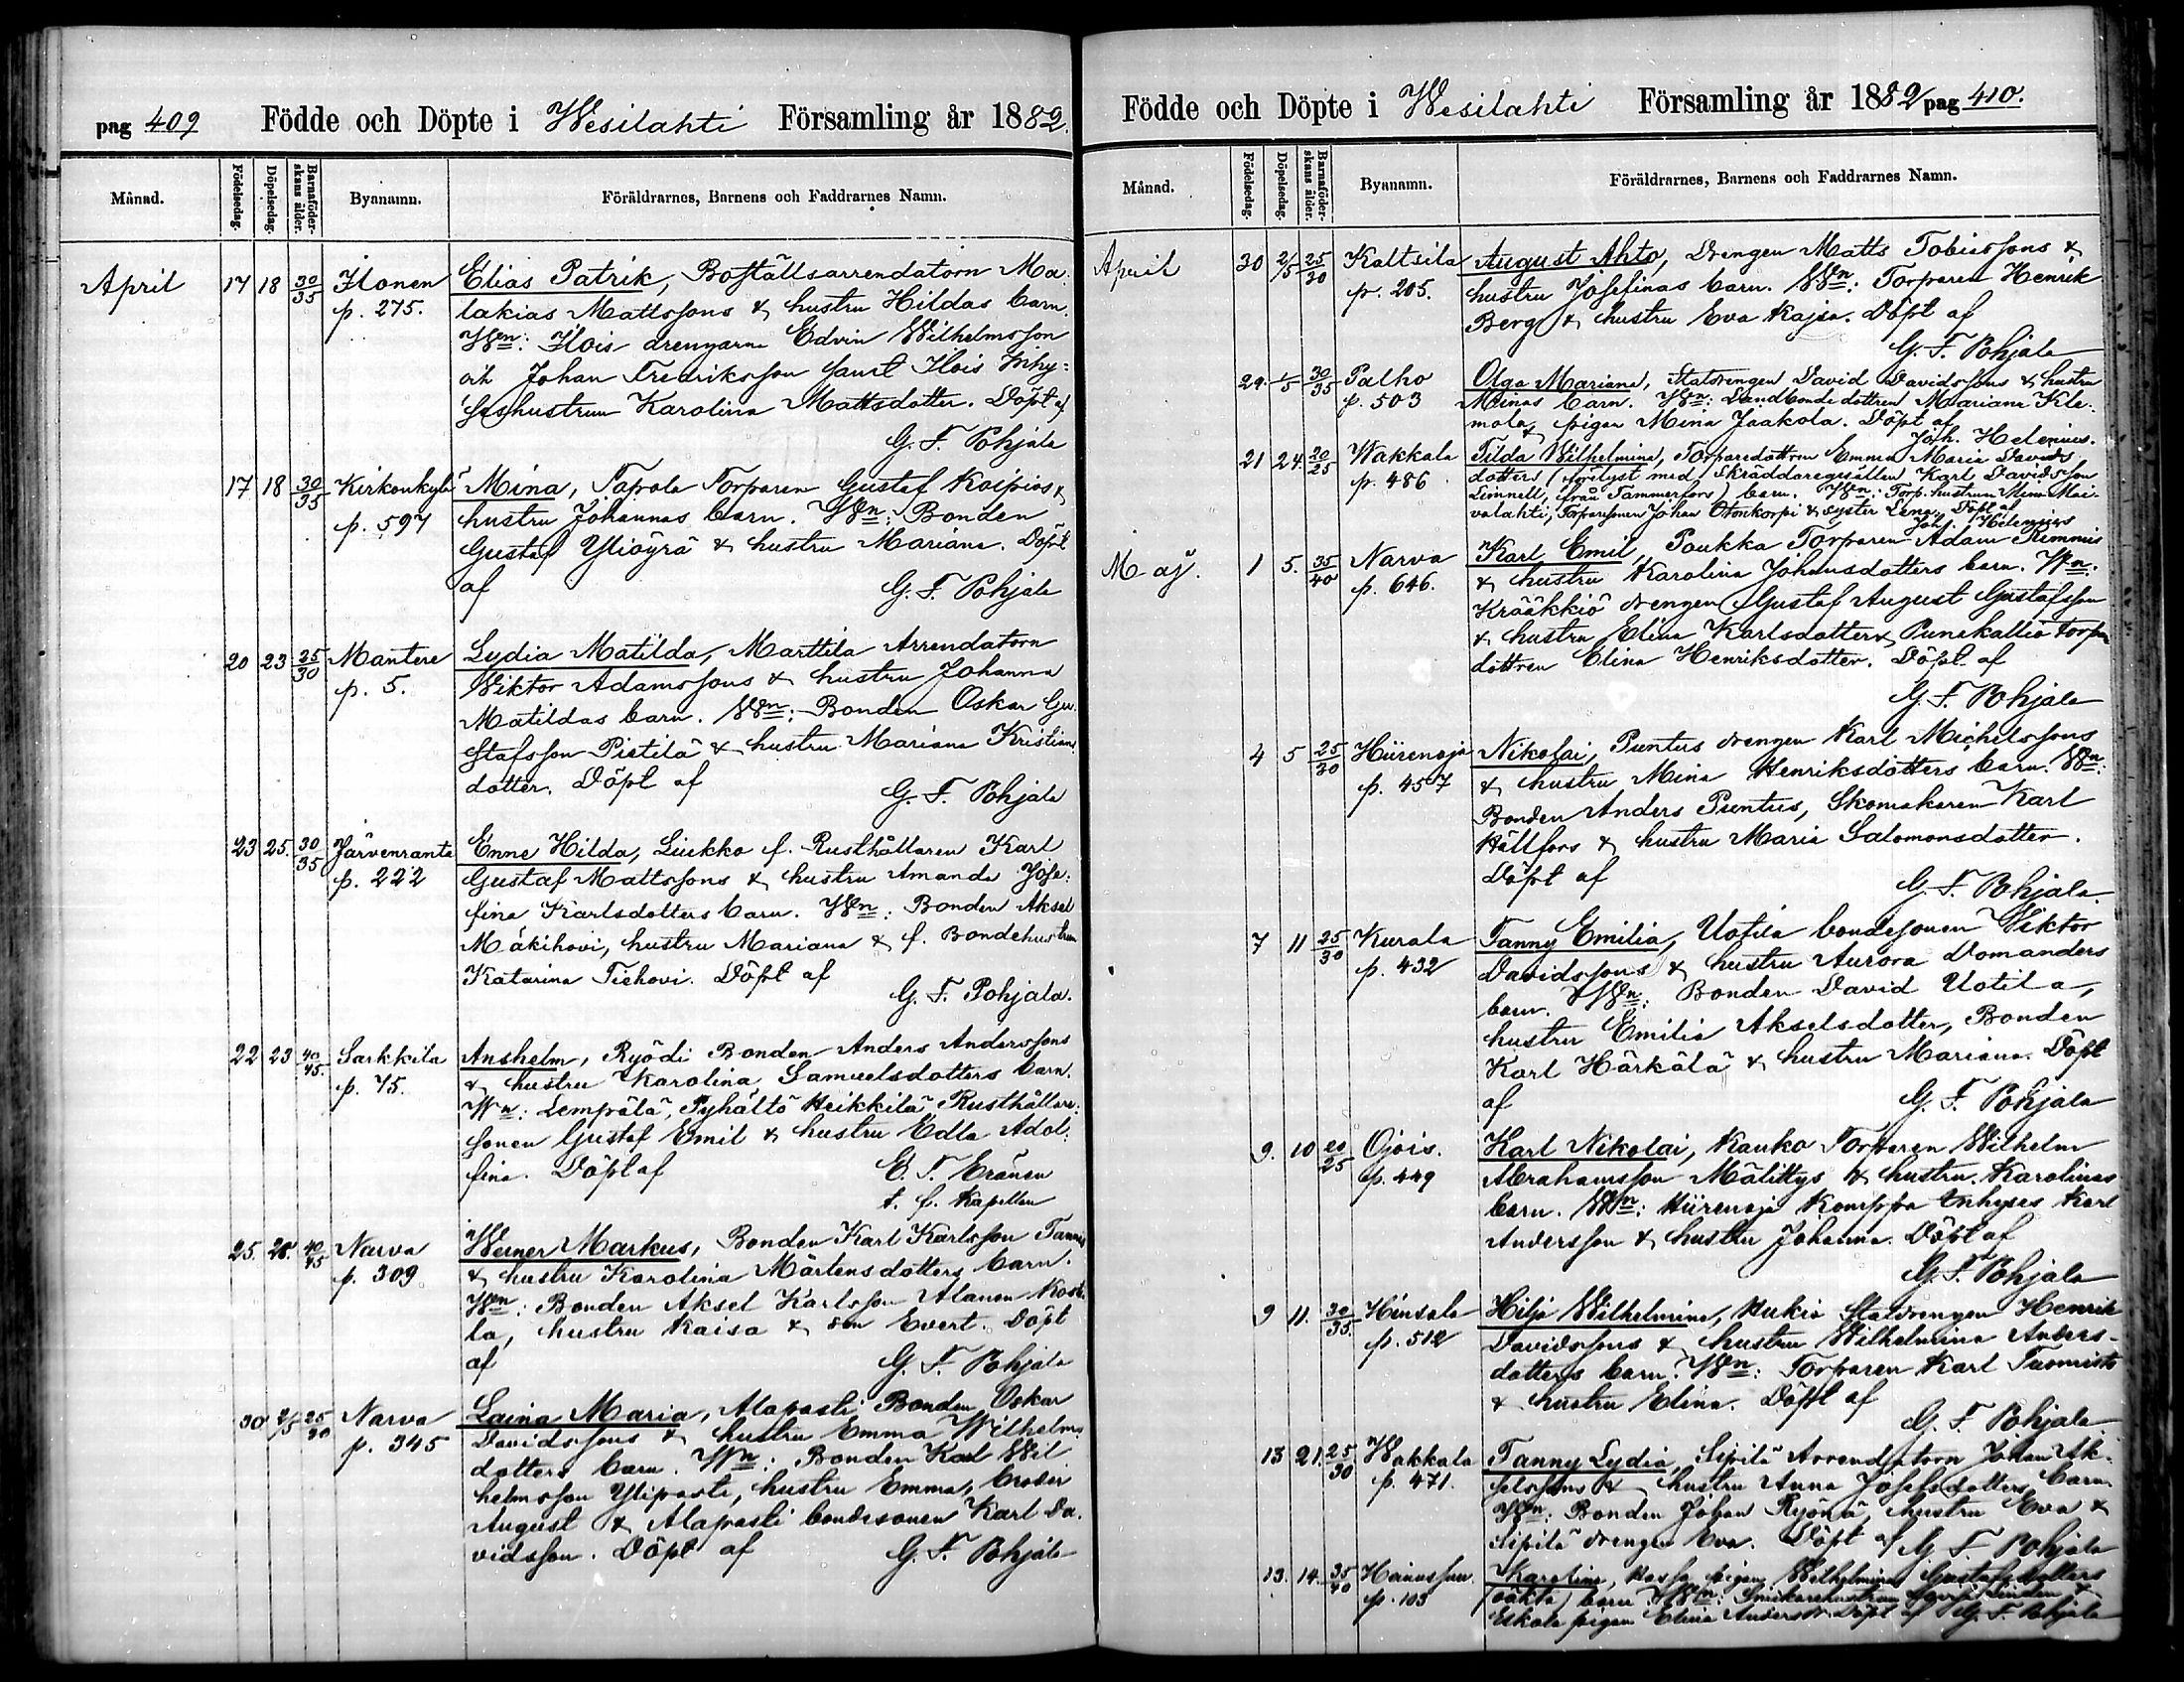 pag 409 Födde och Döpte i Wesilahti Församling år 1882.
Månad. Födelsedag. Döpelsedag. Barnaföderskans ålder. Bynamn. Föräldrarnes, Barnens och Faddrarnes Namn.
April 17 18 30/35 Ilonen Elias Patrik, Boställsarrendatorn Ma-
p. 275. lakias Mattssons & hustru Hildas barn.
Wn: Ilois drengarna Edvin Wilhelmsson
och Johan Fredriksson samt Ilois Inhy=
seshustrun Karolina Mattsdotter. Döpt af
G. F. Pohjala
17 18 30/35 Kirkonkylä Mina, Tapola Torparen Gustaf Koipios &
p. 597 hustru Johannas barn. Wn: Bonden
Gustaf Yliöyrä & hustru Mariana. Döpt
af G. F. Pohjala
20 23 25/30 Mantere Lydia Matilda, Marttila Arrendatorn
p. 5. Wiktor Adamssons & hustru Johanna
Matildas barn. Wn: Bonden Oskar Gu-
stafsson Pietilä & hustru Mariana Kristians
dotter. Döpt af
G. F. Pohjala
23 25. 30/35 Järvenranta Enne Hilda, Liukko f. Rusthållaren Karl
p. 222 Gustaf Mattssons & hustru Amanda Jose-
fina Karlsdotters barn. Wn: Bonden Aksel
Mäkihovi, hustru Mariana & f. Bondehustrun
Katarina Tiehovi. Döpt af
G. F. Pohjala.
22 23 40/45. Sarkkila Anshelm, Ryödi Bonden Anders Anderssons
p. 75. & hustru Karolina Samuelsdotters barn.
Wn: Lempälä, Pyhältö Heikkilä Rusthållare-
sonen Gustaf Emil & hustru Edla Adol-
fina. Döpt af E. F. Eränen
t. f. Kapellan
25. 28. 40/45 Narva Werner Markus, Bonden Karl Karlsson Tannis
p. 309 & hustru Karolina Mårtensdotters barn.
Wn: Bonden Aksel Karlsson Alanen Kost-
la, hustru Kaisa & son Evert. Döpt
af G. F. Pohjala
30 2/5 25/30 Narva Laina Maria, Alapasti Bonden Oskar
p. 345 Davidssons & hustru Emma Wilhelms
dotters barn. Wn: Bonden Karl Wil
helmsson Ylipasti, hustru Emma, broder
August & Alapasti bondesonen Karl Da-
vidsson. Döpt af G. F. Pohjala
Födde och Döpte i Wesilahti Församling år 1882 pag 410.
Månad. Födelsedag. Döpelsedag. Barnaföderskans ålder. Bynamn. Föräldrarnes, Barnens och Faddrarnes Namn.
April 30 2/5 25/30 Kaltsila August Ahto, Drengen Matts Tobiassons &
p. 205. hustru Josefinas barn. Wn: Torparen Henrik
Berg & hustru Eva Kajsa. Döpt af
G. F. Pohjala
29. 1/5 30/35 Palho Olga Mariana, Statdrengen David Davidssons & hustru
p. 503 Minas barn. Wn: Landbondedottren Mariana Kle-
mola, & pigan Mina Jaakola. Döpt af
Joh. Helenius.
21 24. 20/25 Wakkala Tilda Wilhelmina, Torparedottren Emma Maria Davids
p. 486. dotters (förlyst med Skräddaregesällen Karl Davidsson
Linnell, från Tammerfors) barn. Wn: Torp.hustrun Mina Mai-
valahti, Torparesonen Johan Otonkorpi & syster Lena. Döpt af
Joh. Helenius
Maj. 1 5. 35/40 Narva Karl Emil, Poukka Torparen Adam Kimmis
p. 646. & hustru Karolina Johansdotters barn. Wn.
Krääkkiö drengen Gustaf August Gustafsson
& hustru Elina Karlsdotter & Punakallio torpar
dottren Elina Henriksdotter. Döpt af
G. F. Pohjala
4 5 25/30 Hiirenoja Nikolai, Puntus drengen Karl Michelssons
p. 457 & hustru Mina Henriksdotters barn. Wn:
Bonden Anders Puntus, Skomakaren Karl
Hällfors & hustru Maria Salomonsdotter.
Döpt af G. F. Pohjala.
7 11 25/30 Kurala Fanny Emilia, Uotila bondesonen Viktor
p. 432 Davidssons & hustru Aurora Domanders
barn. Wn: Bonden David Uotila,
hustru Emilia Akselsdotter, Bonden
Karl Härkälä & hustru Mariana. Döpt
af G. F. Pohjala
9. 10 20/25 Ojois. Karl Nikolai, Kauko Torparen Wilhelm
p. 449 Abrahamsson Mälittys & hustru Karolinas
barn. Wn: Hiirenoja Komppa Inhyses Karl
Andersson & hustru Johanna. Döpt af
G. F. Pohjala
9 11. 30/35. Hinsala Hilja Wilhelmina, Hukia Statdrengen Henrik
p. 512 Davidssons & hustru Wilhelmina Anders-
dotters barn. Wn: Torparen Karl Tuomisto
& hustru Elina. Döpt af
G. F. Pohjala
13 21. 25/30 Wakkala Fanny Lydia, Sipilä Arrendatorn Johan Ak-
p. 471. selssons & hustru Anna Josefsdotters barn
Wn: Bonden Johan Ryönä, hustru Eva &
Sipilä drengen Eva. Döpt af G. F. Pohjala
13. 14. 35/40 Karolina, Hassa pigan Wilhelmina Gustafsdotters
p. 103 (oäkta) barn Wn: Snickarehustrun &
Eskola pigan Elina Andersdr. Döpt af G. F. Pohjala